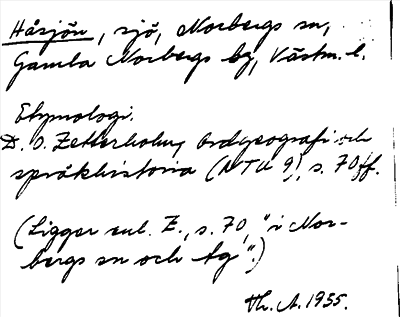 Håsjön, sjö, Norbergs sn,
Gamla Norbergs bg, Västm. l.
Etymologi.
D. O. Zetterholm, Ordgeografi och
språkhistoria (NTU 9), s. 70 ff.
(Ligger enl. Z., s. 70, "i Nor-
bergs sn och lg".)
Th. A. 1955.